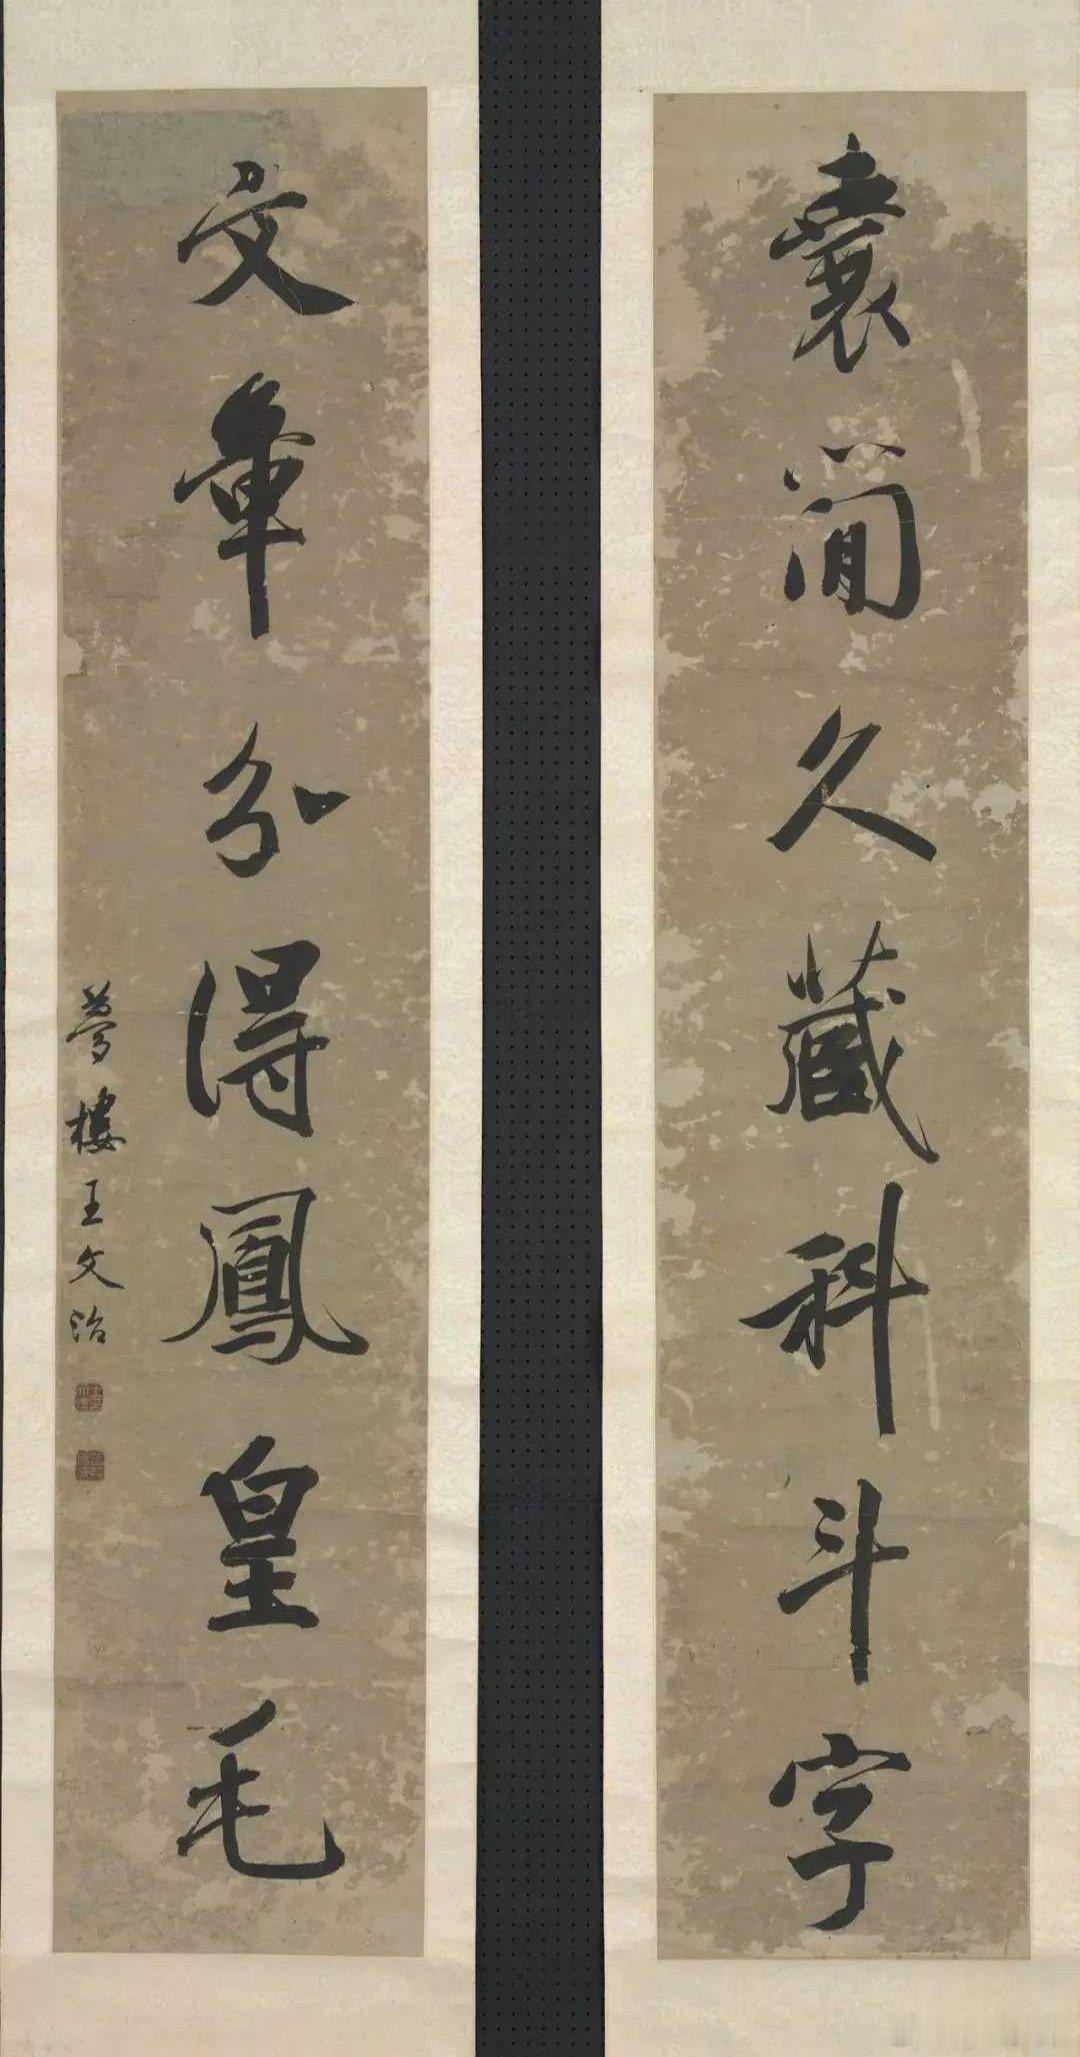 囊简久藏科斗字
文章分得鳳皇毛
夢樓王文治